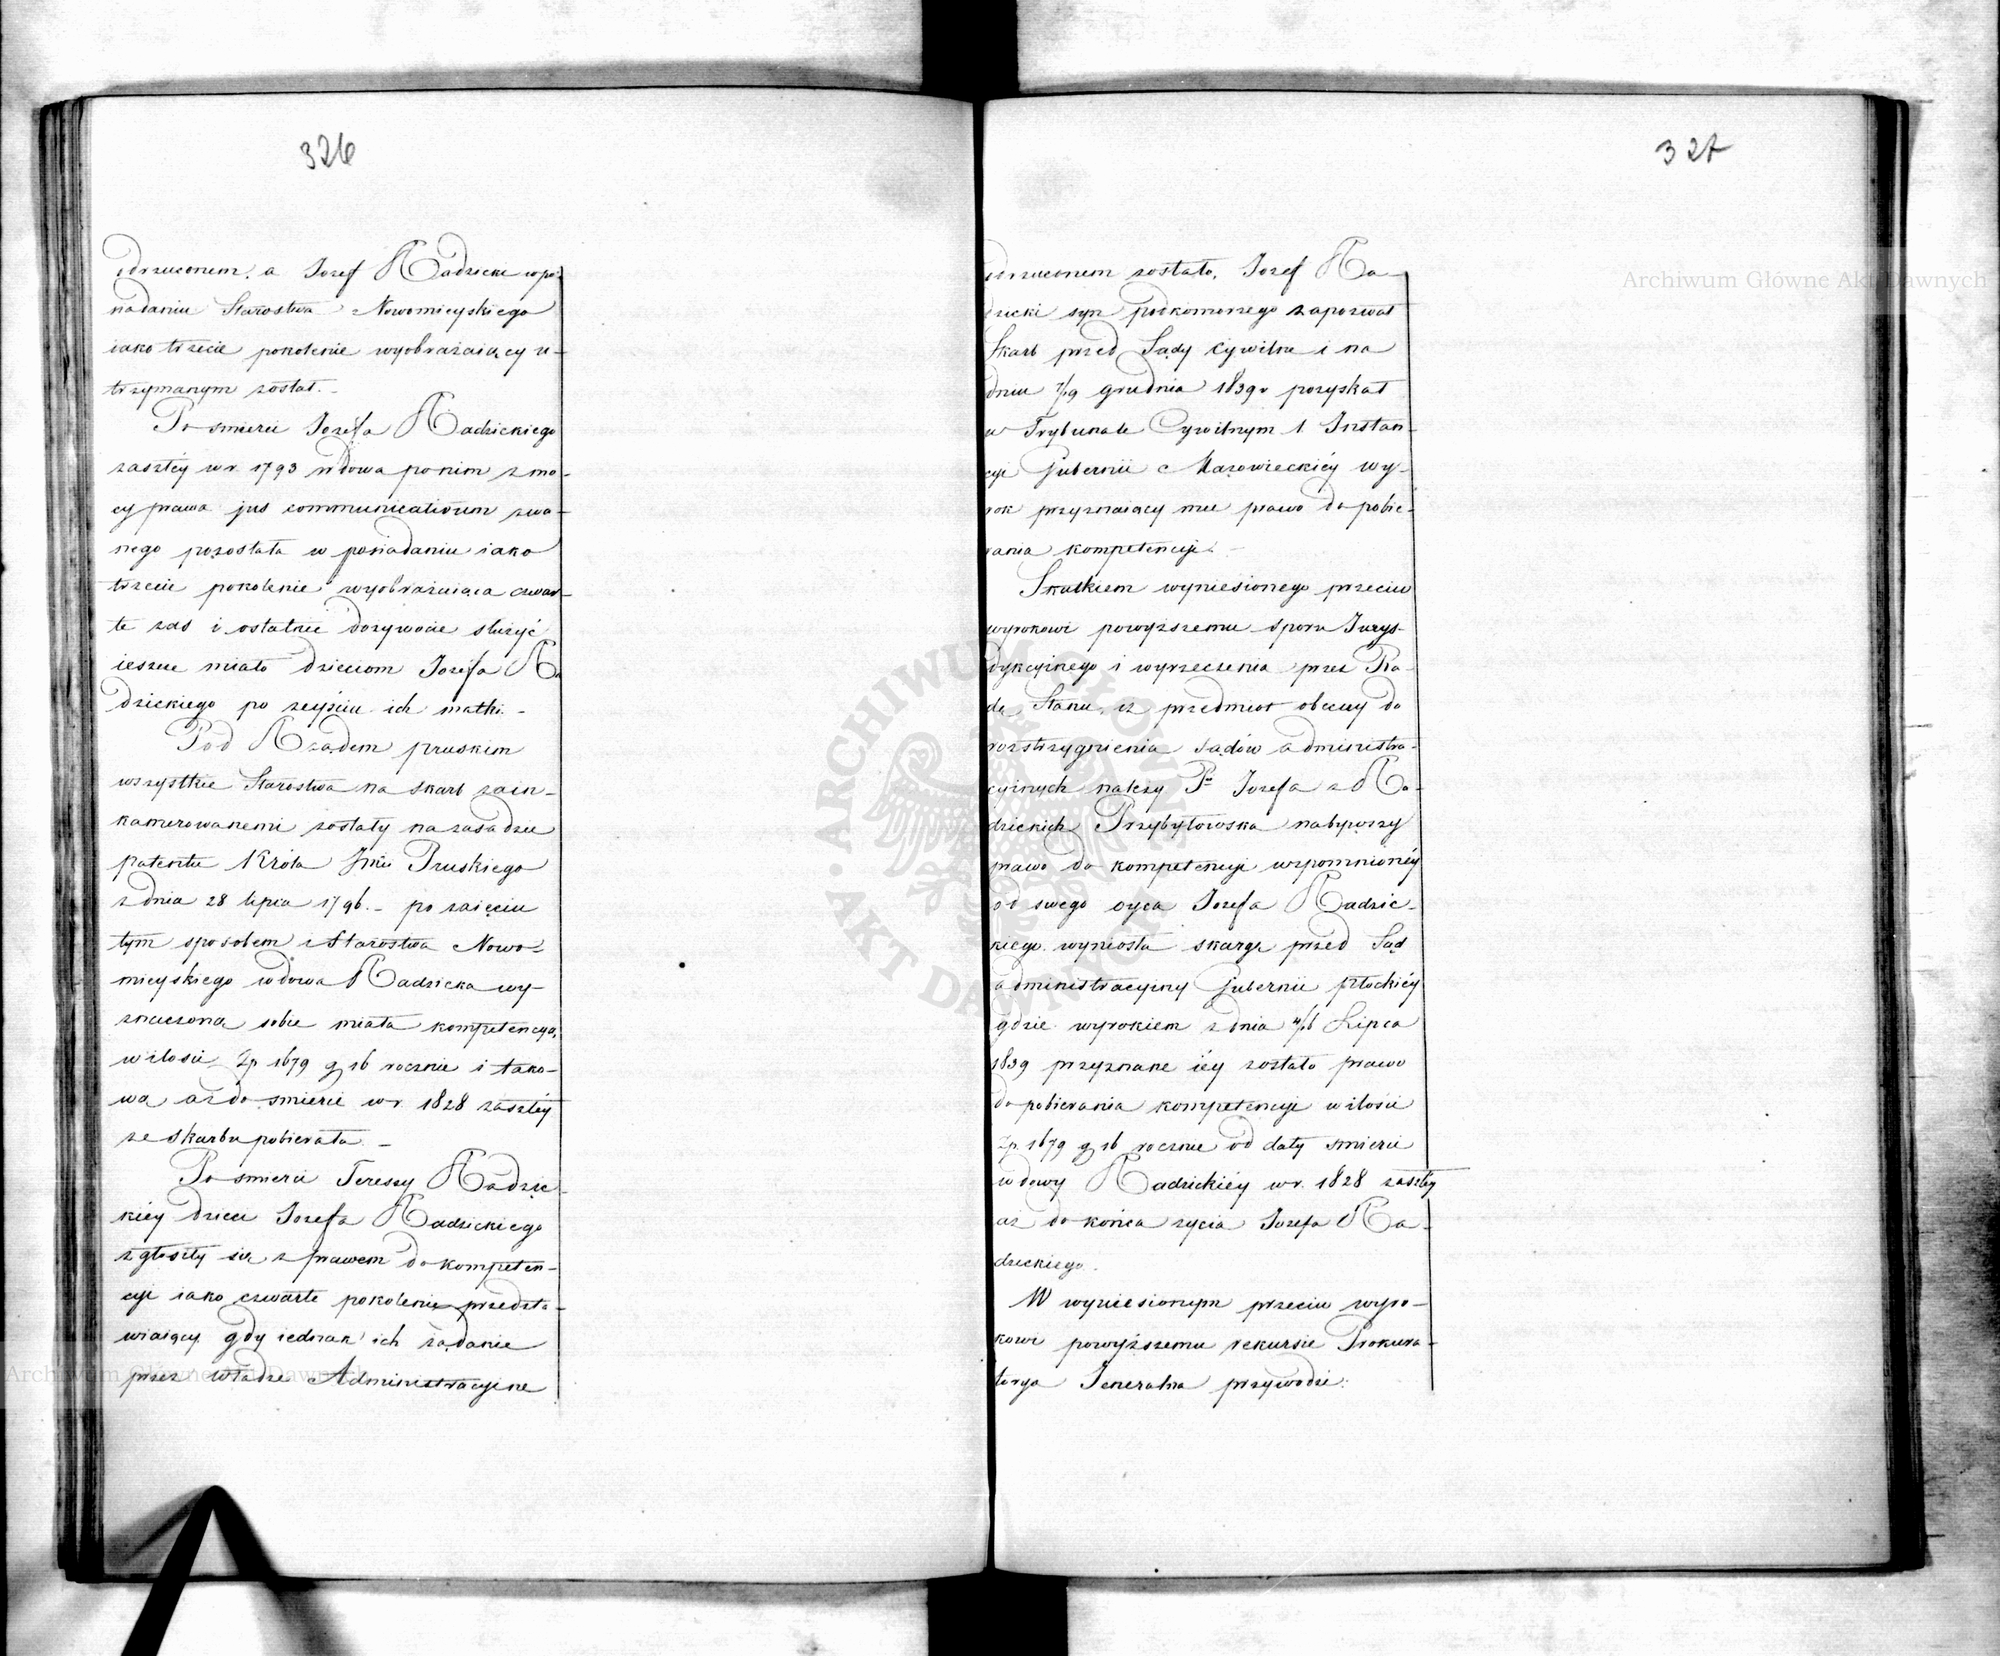 326
odrzuconem, a Jozef Radzicki w po-
siadaniu Starostwa Nowomieyskiego
iako trzecie pokolenie wyobrażaiący u-
trzymanym został. –
Po smierci Jozefa Radzickiego
zaszłéy w r. 1793 wdowa po nim z mo-
cy prawa jus communicativum zwa-
nego pozostała w posiadaniu iako
trzecie pokolenie wyobrażaiąca czwar-
te zas i ostatnie dozywocie służyć
ieszcze miało dzieciom Jozefa Ra
dzickiego po zeyściu ich matki. –
Pod Rządem pruskim
wszystkie Starostwa na skarb zain-
kamerowanemi zostały na zasadzie
patentu Króla Jmci Pruskiego
z dnia 28 lipca 1796. – po zaięciu
tym sposobem Starostwa Nowo-
mieyskiego wdowa Radzicka wy-
znaczoną sobie miała kompetencyą
w ilosci Zp 1679 g 16 rocznie i tako-
wą aż do smierci w r. 1828 zaszłéy
ze skarbu pobierała –
Po smierci Teressy Radzic-
kiéy dzieci Jozefa Radzickiego
zgłosiły się z prawem do kompeten-
cyi iako czwarte pokolenie przedsta-
wiaiący gdy iednak ich żądanie
przez władze Administracyjne
327
odrzuconem zostało, Jozef Ra-
dzicki syn podkomorzego zapozwał
Skarb przed Sądy Cywilne i na
dniu 7/19 grudnia 1839 r pozyskał
w Trybunale Cywilnym 1. Instan-
cyi Gubernii Mazowieckiéy wy-
rok przyznaiący mu prawo do pobie-
rania kompetencyi. –
Skutkiem wyniesionego przeciw
wyrokowi powyższemu sporu Jurys-
dykcyinego i wyrzeczenia przez Ra-
dę Stanu, iż przedmiot obecny do
rozstrzygnienia Sądów administra-
cyinych należy Pni Jozefa z Ra-
dzickich Przybyłowska nabywszy
prawo do kompetencyi wzpomnionéy
od swego oyca Jozefa Radzic-
kiego wyniosła skargę przed Sąd
administracyiny Gubernii płockiéy
gdzie wyrokiem z dnia 4/16 Lipca
1839 przyznane iéy zostało prawo
do pobierania kompetencyi w ilosci
Zp 1679 g 16 rocznie od daty smierci
wdowy Radzickiéy w r. 1828 zaszłéy
aż do końca życia Jozefa Ra-
dzickiego.
W wyniesionym przeciw wyro-
kowi powyższemu rekursie Prokura-
torya Jeneralna przywodzi:
Archiwum Główne Akt Dawnych
ARCHIWUM GŁÓWNE • AKT DAWNYCH •
Archiwum Główne Akt Dawnych